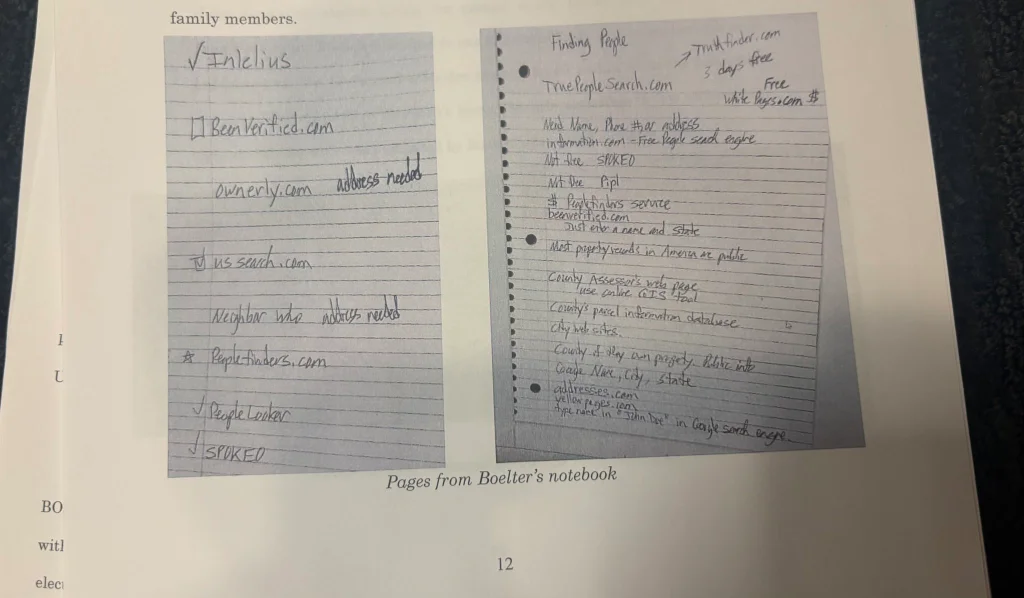 family members.
✓ Intelius
☐ BeenVerified.com
ownerly.com address needed
☑ ussearch.com
Neighbor Who address needed
☆ Peoplefinders.com
✓ PeopleLooker
✓ SPOKEO
Finding People
→ Truthfinder.com
3 days free
TruePeopleSearch.com
Free
White Pages.com $
Need Name, Phone #, or address
information.com - Free People search engine
Not free SPOKEO
Not free Pipl
$ Peoplefinders service
beenverified.com
Just enter a name and state
Most property records in America are public
County Assessor's web page
use online GIS tool
County's parcel information database
City web sites.
County if they own property. Public info
Google Name, City, State
addresses.com
yellowpages.com
type name in "John Doe" in Google search engine.
Pages from Boelter's notebook
12
U
BO
with
elec